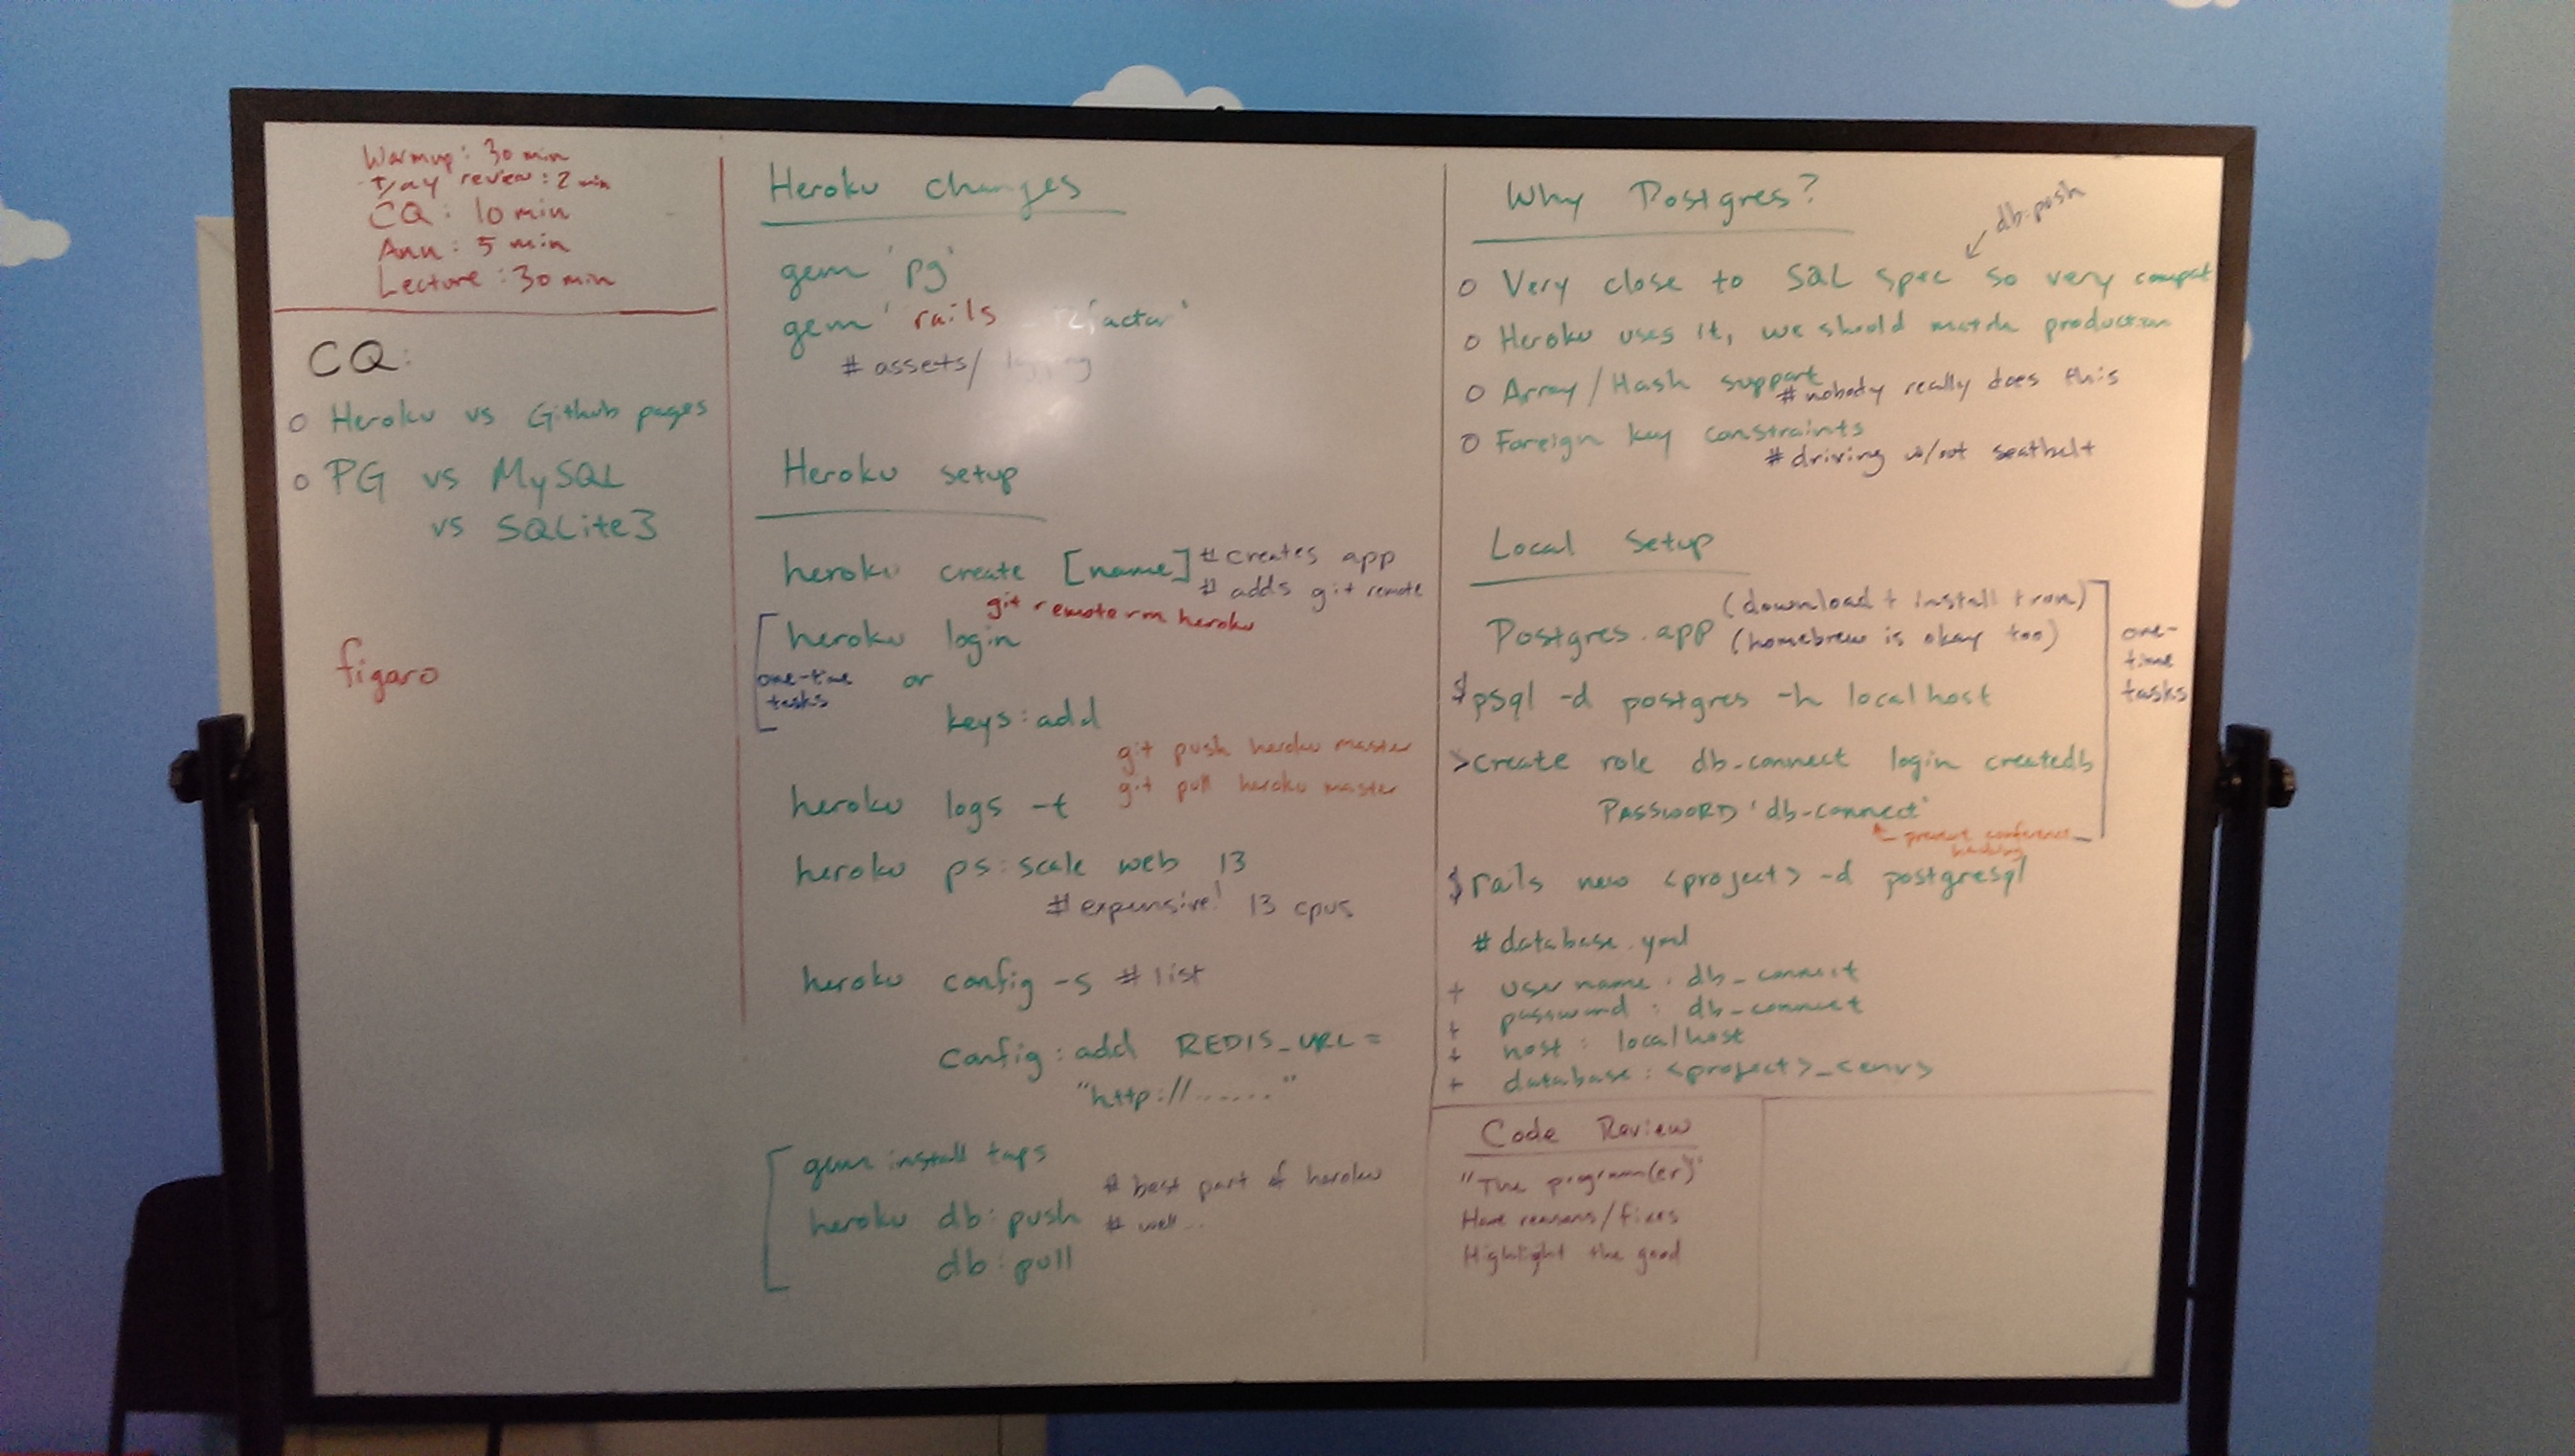 Warmup: 30 min
review: 2 min
CQ: 10 min
Ann: 5 min
Lecture: 30 min
CQ:
o Heroku vs Github pages
o PG vs MySQL
vs SQLite3
figaro
Heroku changes
gem 'pg'
gem 'rails
# assets/
Heroku setup
heroku create [name] # creates app
# adds git remote
git remote rm heroku
heroku login
one-time or
tasks
keys:add
git push heroku master
git pull heroku master
heroku logs -t
heroku ps:scale web 13
# expensive! 13 cpus
heroku config -s # list
config:add REDIS_URL=
"http://......"
gem install taps
# best part of heroku
heroku db:push # well...
db:pull
Why Postgres?
db:push
o Very close to SQL spec so very compat
o Heroku uses it, we should match production
o Array/Hash support
# nobody really does this
o Foreign key constraints
# driving w/out seatbelt
Local Setup
(download + install + run)
Postgres.app (homebrew is okay too)
one-
time
tasks
$ psql -d postgres -h localhost
> create role db_connect login createdb
PASSWORD 'db_connect'
prevent conference
hacking
$ rails new <project> -d postgresql
# database.yml
+ username: db_connect
+ password: db_connect
+ host: localhost
+ database: <project>_<env>
Code Review
"The program(er)"
Have reasons/fixes
Highlight the good